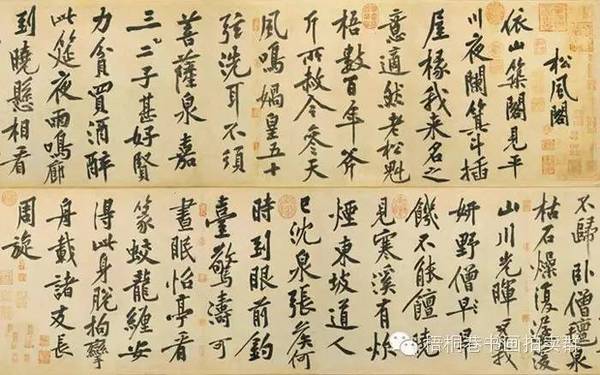 松風閣
依山築閣見平
川夜闌箕斗插
屋椽我來名之
意適然老松魁
梧數百年斧
斤所赦今參天
風鳴媧皇五十
弦洗耳不須
菩薩泉嘉
三二子甚好賢
力貧買酒醉
此筵夜雨鳴廊
到曉懸相看
不歸卧僧氈泉
枯石燥復潺湲
山川光暉為我
妍野僧早旱
饑不能饘曉
見寒溪有炊
煙東坡道人
已沈泉張侯何
時到眼前釣
臺驚濤可
晝眠怡亭看
篆蛟龍纏安
得此身脫拘攣
舟載諸友長
周旋
梧桐巷书画拍卖群